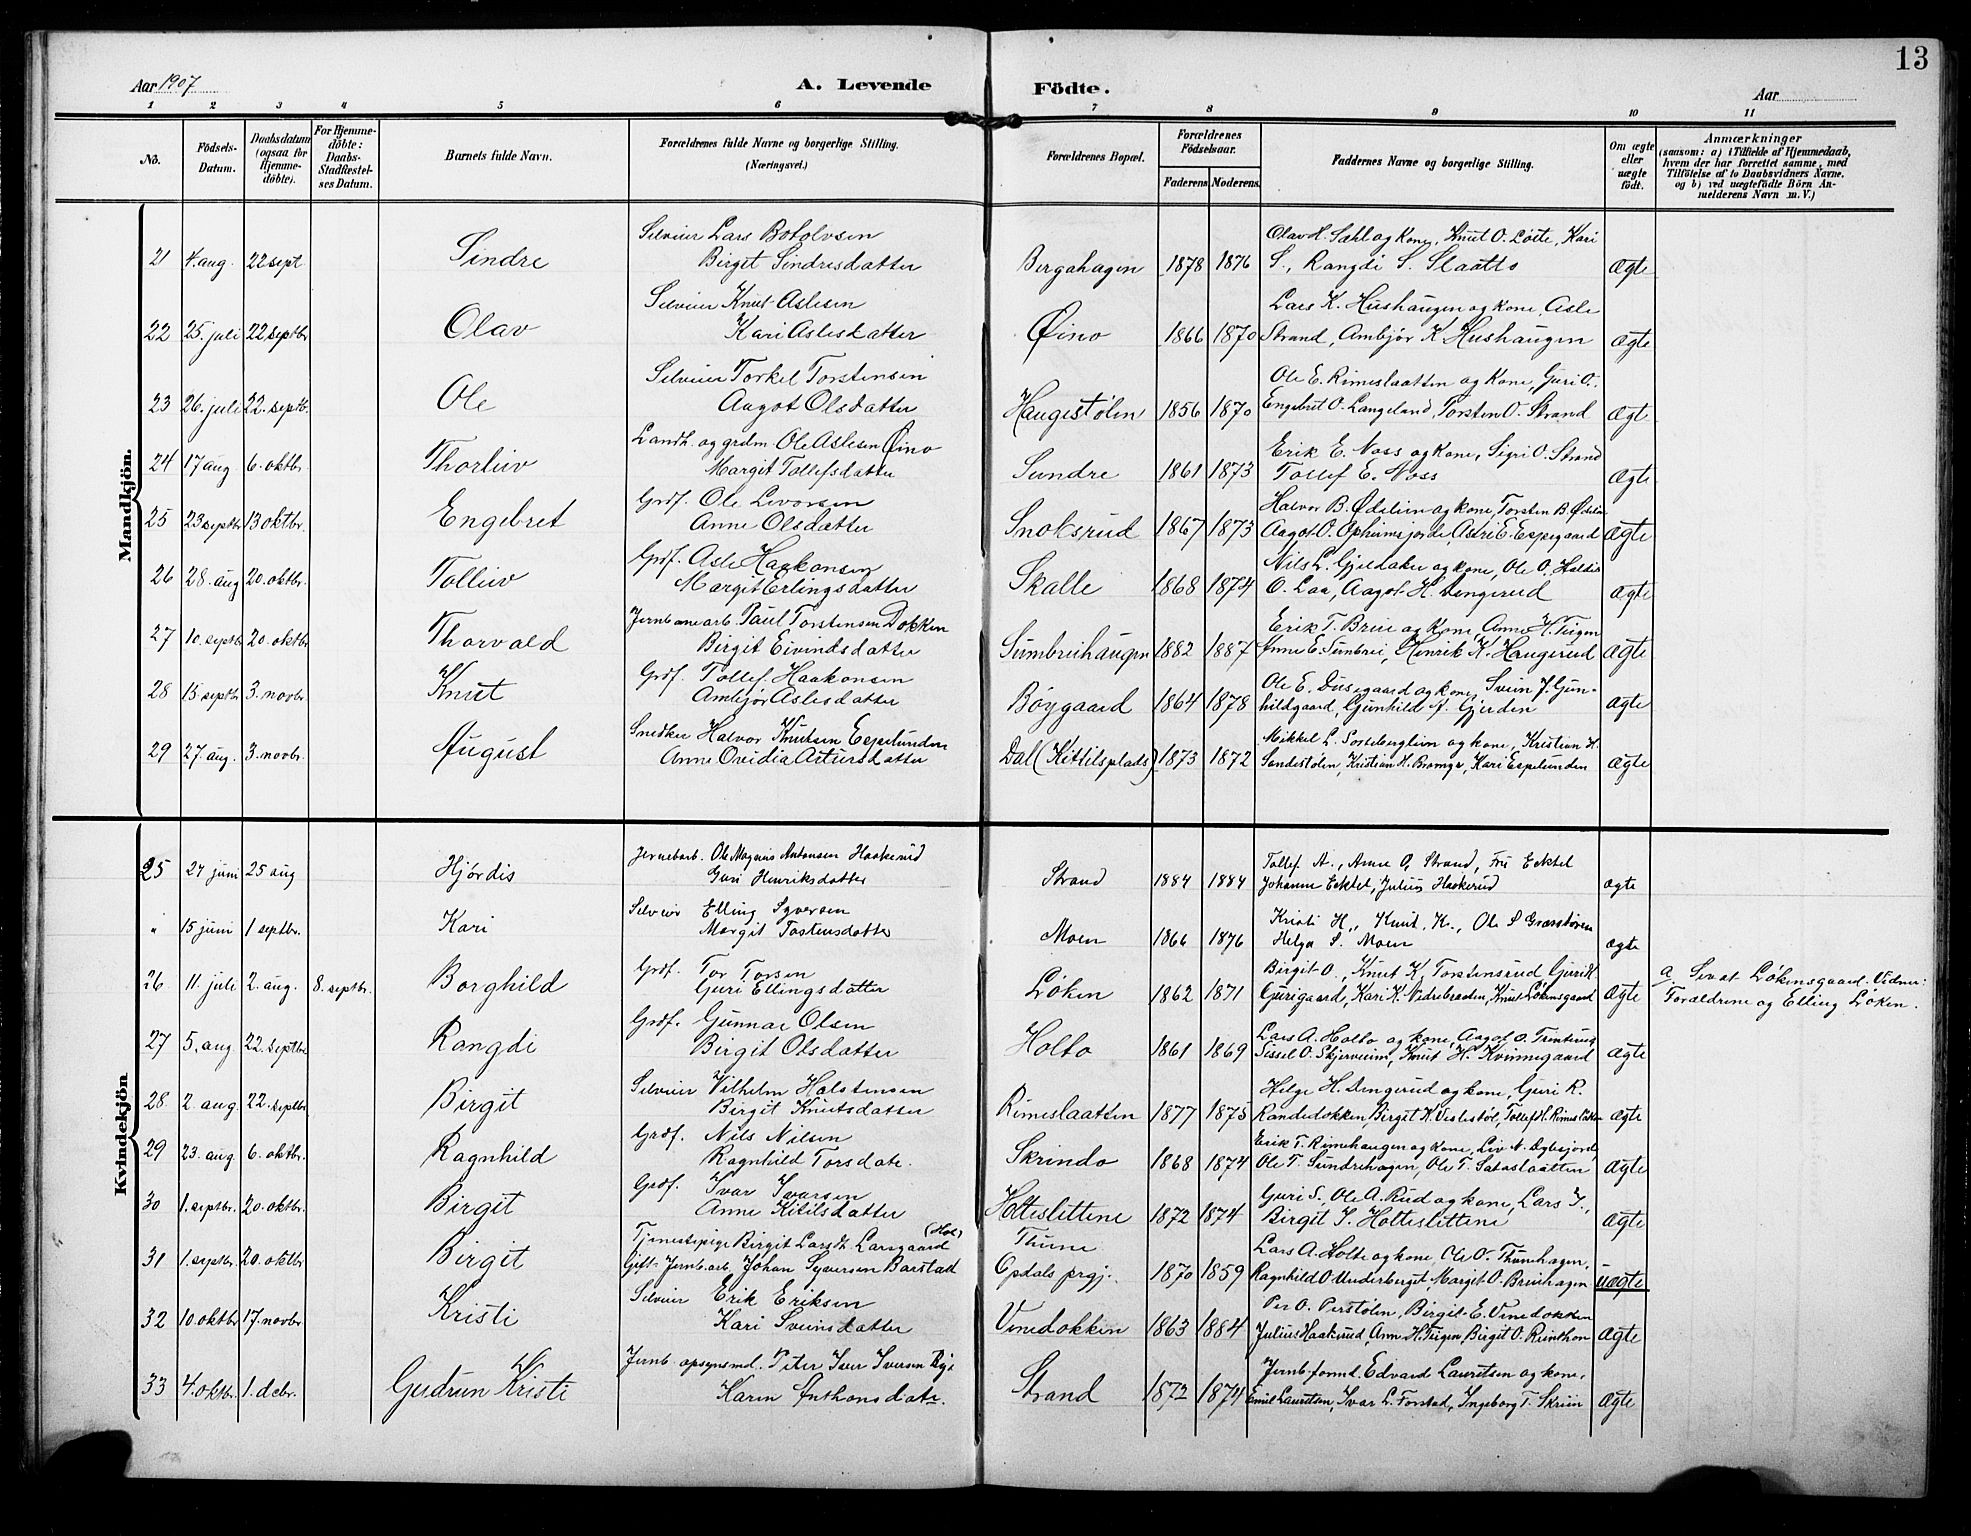 13
Aar 1907
A. Levende Födte.
Aar
1 2 3 4 5 6 7 8 9 10 11
No.
Födsels-Datum.
Daabsdatum (ogsaa for Hjemme-döbte).
For Hjemme-döbte: Daabs-Stadfæstel-ses Datum.
Barnets fulde Navn.
Forældrenes fulde Navne og borgerlige Stilling. (Næringsvei.)
Forældrenes Bopæl.
Forældrenes Födselsaar.
Faderens Moderens.
Faddernes Navne og borgerlige Stilling.
Om ægte eller uægte födt.
Anmærkninger
(saasom: a) i Tilfælde af Hjemmedaab, hvem der har forrettet samme, med Tilföielse af to Daabsvidners Navne, og b) ved uægtefödte Börn An-melderens Navn m. V.)
Mandkjön.
Selveier Lars Botolvsen
Olav H. Sæhl og kone, Knut O. Löite, Kari
21 4. aug. 22 sept Sindre Birgit Sindresdatter Bergahagen 1878 1876 S., Rangdi S. Slaatto ægte
Selveier Knut Aslesen
Lars K. Hushaugen og kone, Asle
22 25. juli 22 septbr Olav Kari Aslesdatter Øino 1866 1870 Strand, Ambjør K. Hushaugen ægte
Selveier Torkel Torstensen
Ole E. Rimeslaatten og kone, Guri O.
23 26. juli 22. septb. Ole Aagot Olsdatter Haugestølen 1856 1870 Engebret O. Langeland, Torsten O. Strand ægte
Landh. og grdm. Ole Aslesen Øino
Erik E. Noss og kone, Sigri O. Strand
24 17 aug 6. oktbr. Thorleiv Margit Tollefsdatter Sundre 1861 1873 Tollef E. Noss ægte
Grdf. Ole Levorsen
Halvor B. Ødelien og kone, Torsten B. Ødelien
25 23 septbr 13 oktbr. Engebret Anne Olsdatter Snoksrud 1867 1873 Aagot O. Opheimsjorde, Astri E. Espegaard ægte
Grdf. Asle Haakonsen
Nils L. Gjeldaker og kone, Ole O.
26 28. aug 20. oktbr. Tolleiv Margit Erlingsdatter Skalle 1868 1874 O. Laa, Aagot H. Dengerud ægte
Jernbanearb. Paul Torstensen Dokken
Erik T. Breie og kone, Anne H. Teigen
27 10. septbr 20. oktbr Thorvald Birgit Eivindsdatter Sumbreihaugen 1882 1887 Anne E. Sumbrei, Henrik K. Haugerud ægte
Grdf. Tollef Haakonsen
Ole E. Dusegaard og kone, Svein J. Gun-
28 15. septbr 3. novbr. Knut Ambjør Aslesdatter Böygaard 1864 1878 hildgaard, Gunhild A. Gjerden ægte
Snedker Halvor Knutsen Espelunden
Mikkel L. Sorteberglien og kone, Kristian H.
29 27. aug. 3. novbr. August Anne Ovidia Artursdatter Dal (Kittilsplads) 1873 1872 Sandestølen, Kristian H. Bromga, Kari Espelunden ægte
Kvindekjön
Jernebarb. Ole Magnus Antonsen Haakerud
Tollef A., Anne O. Strand, Fru Ecktel
25 27 juni 25 aug Hjørdis Guri Henriksdatter Strand 1884 1884 Johanne Ecktel, Julius Haakerud ægte
Selveier Elling Syversen
Kristi H., Knut K., Ole S Græsstøren
" 15 juni 1 septbr. Kari Margit Tostensdatter Moen 1866 1876 Helga S. Moen ægte
Grdf. Tor Torsen
Birgit O., Knut K. Torstensrud, Guri K.
26 11. juli 2. aug. 8. septbr. Borghild Guri Ellingsdatter Løken 1862 1871 Gurigaard, Kari K. Vidrebraaten, Knut Løkensgaard ægte
a. Sevat Løkensgaard. Vidner: Forældrene og Elling Løken.
Grdf. Gunnar Olsen
Lars A. Holto og kone, Aagot O. Trintrud
27 5. aug. 22. septbr Rangdi Birgit Olsdatter Holto 1861 1869 Sissel O. Skjerveim, Knut H. Kvinnegaard ægte
Selveier Vilhelm Halstensen
Helge H. Dengerud og kone, Guri R.
28 2. aug. 22. septbr Birgit Birgit Knutsdatter Rimeslaatten 1877 1875 Randedokken, Birgit K. Veslestøl, Tollef H. Rimeslaatten ægte
Grdf. Nils Nilsen
Erik T. Rimehaugen og kone, Liv N. Dybesjorde
29 23. aug. 6. oktbr. Ragnhild Ragnhild Torsdatr. Skrindo 1868 1874 Ole T. Sundrehagen, Ole T. Sataslaatten ægte
Grdf. Ivar Ivarsen
Guri S., Ole A. Rud og kone, Lars I.,
30 1. septbr. 20. oktbr. Birgit Anne Kitilsdatter Holteslettene 1872 1874 Birgit I. Holteslettene ægte
Tjenestepige Birgit Larsdt. Larsgaard (Hol)
Thune
Lars A. Holte og kone, Ole O. Thunhagen,
31 1. septbr. 20. oktbr Birgit Gift Jernb.arb. Johan Syversen Barstad Opdals prgj. 1870 1859 Ragnhild O. Underberget, Margit O. Breihagen uægte
Selveier Erik Eriksen
Per O. Perstølen, Birgit E. Vinedokken
32 10. oktbr 17. novbr. Kristi Kari Sveinsdatter Vinedokken 1863 1884 Julius Haakerud, Ann H. Teigen, Birgit O. Reinton ægte
Jernb. opsynsmd. Peter Iver Iversen Rye
Jernb. formd. Edvard Lauretsen og kone,
33 4. oktbr. 1. decbr. Gudrun Kristi Karen Anthonsdatr. Strand 1872 1874 Emil Lauretsen, Ivar L. Forstad, Ingeborg T. Skrien ægte